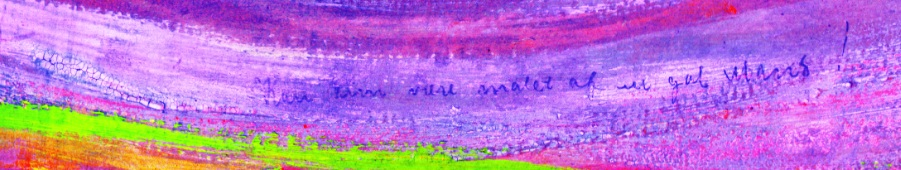 Kan kun være malet af en gal Mand!